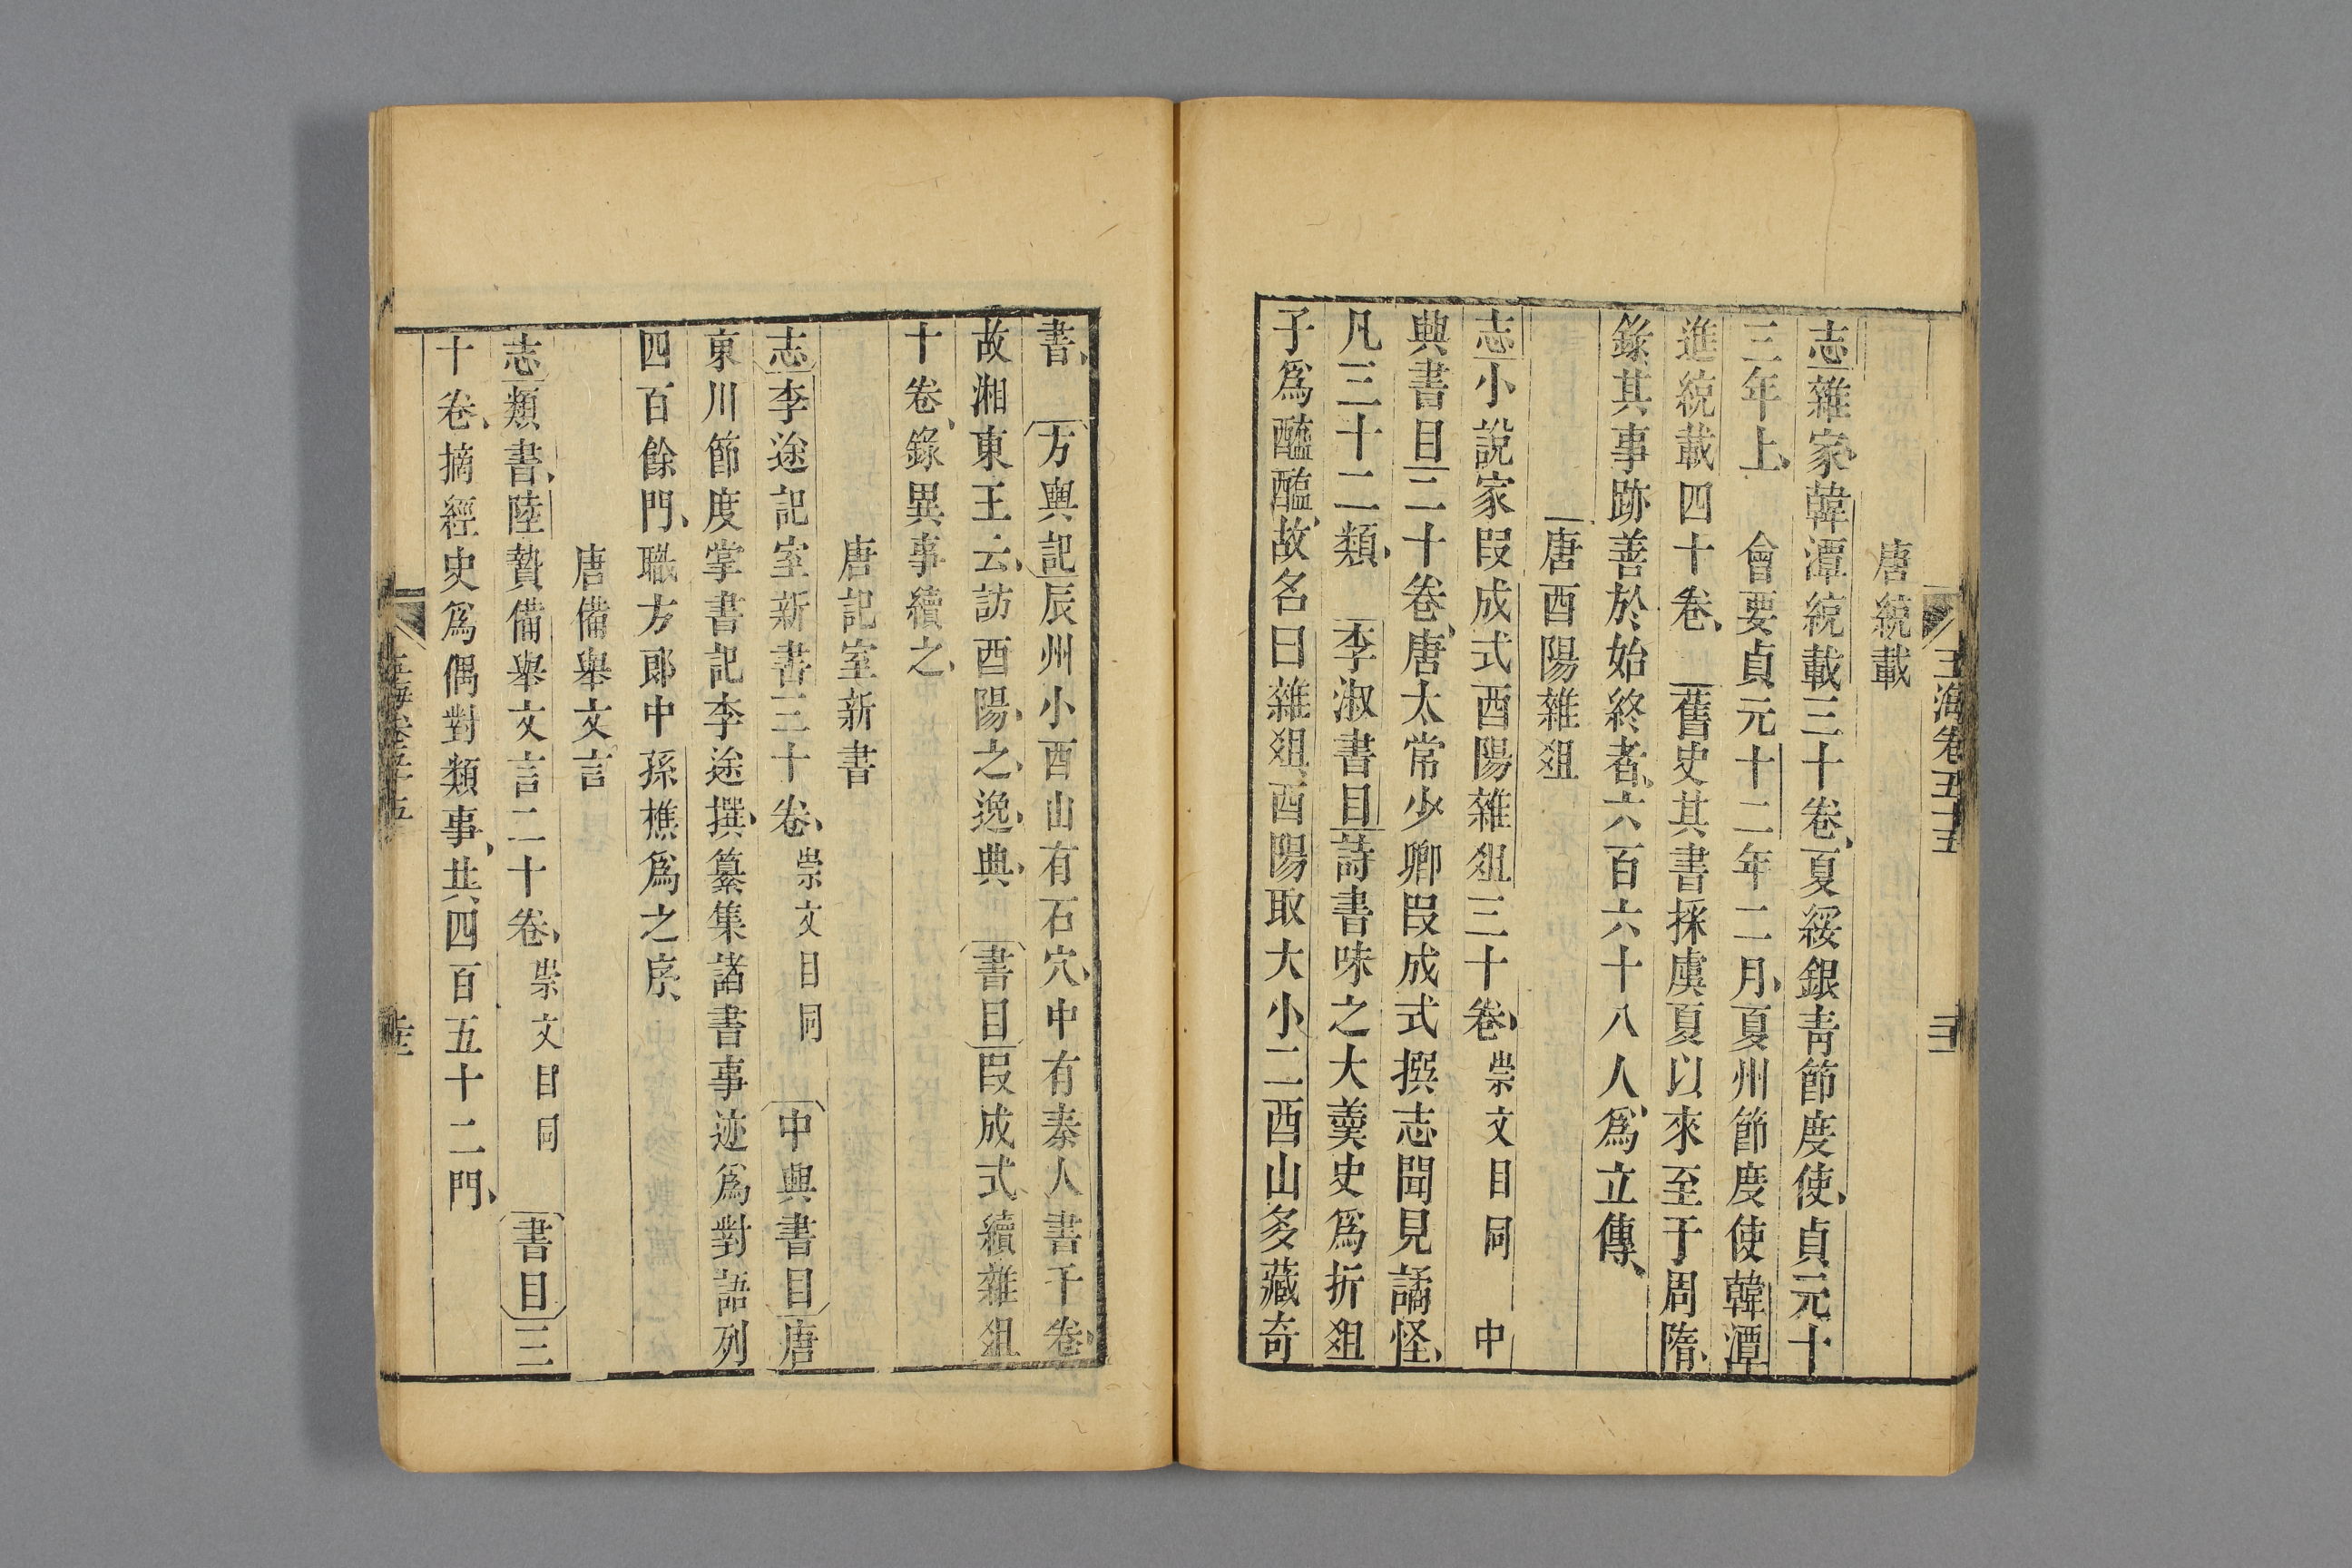 玉海卷五十五
唐統載
志雜家韓潭統載三十卷夏綏銀青節度使貞元十
三年上 會要貞元十二年二月夏州節度使韓潭
進統載四十卷 舊史其書採虞夏以來至于周隋
錄其事跡善於始終者六百六十八人爲立傳
唐酉陽雜俎
志小說家段成式酉陽雜俎三十卷 崇文目同 中
興書目二十卷唐太常少卿段成式撰志聞見譎怪
凡三十二類 李淑書目詩書味之大羹史爲折俎
子爲醯醢故名曰雜俎酉陽取大小二酉山多藏奇
書 方輿記辰州小酉山有石穴中有秦人書千卷
故湘東王云訪酉陽之逸典 書目段成式續雜俎
十卷錄異事續之
唐記室新書
志李途記室新書三十卷 崇文目同 中興書目唐
東川節度掌書記李途撰纂集諸書事迹爲對語列
四百餘門職方郎中孫樵爲之序
唐備舉文言
志類書陸贄備舉文言二十卷 崇文目同 書目三
十卷摘經史爲偶對類事共四百五十二門
玉海卷五十五